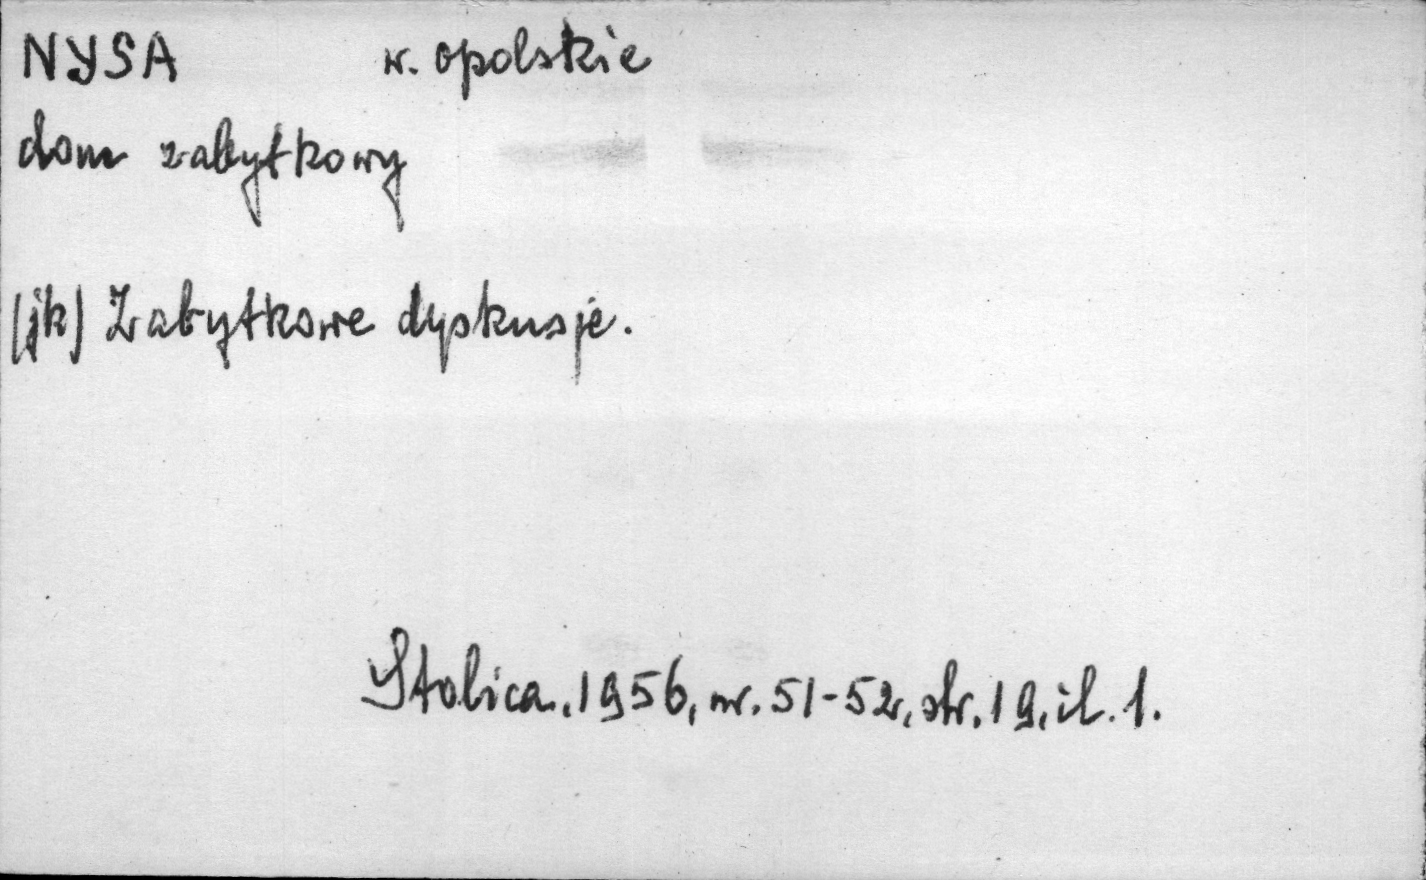 NYSA w. opolskie
dom zabytkowy
(jk) Zabytkowe dyskusje.
Stolica, 1956, nr. 51-52, str. 19, il. 1.